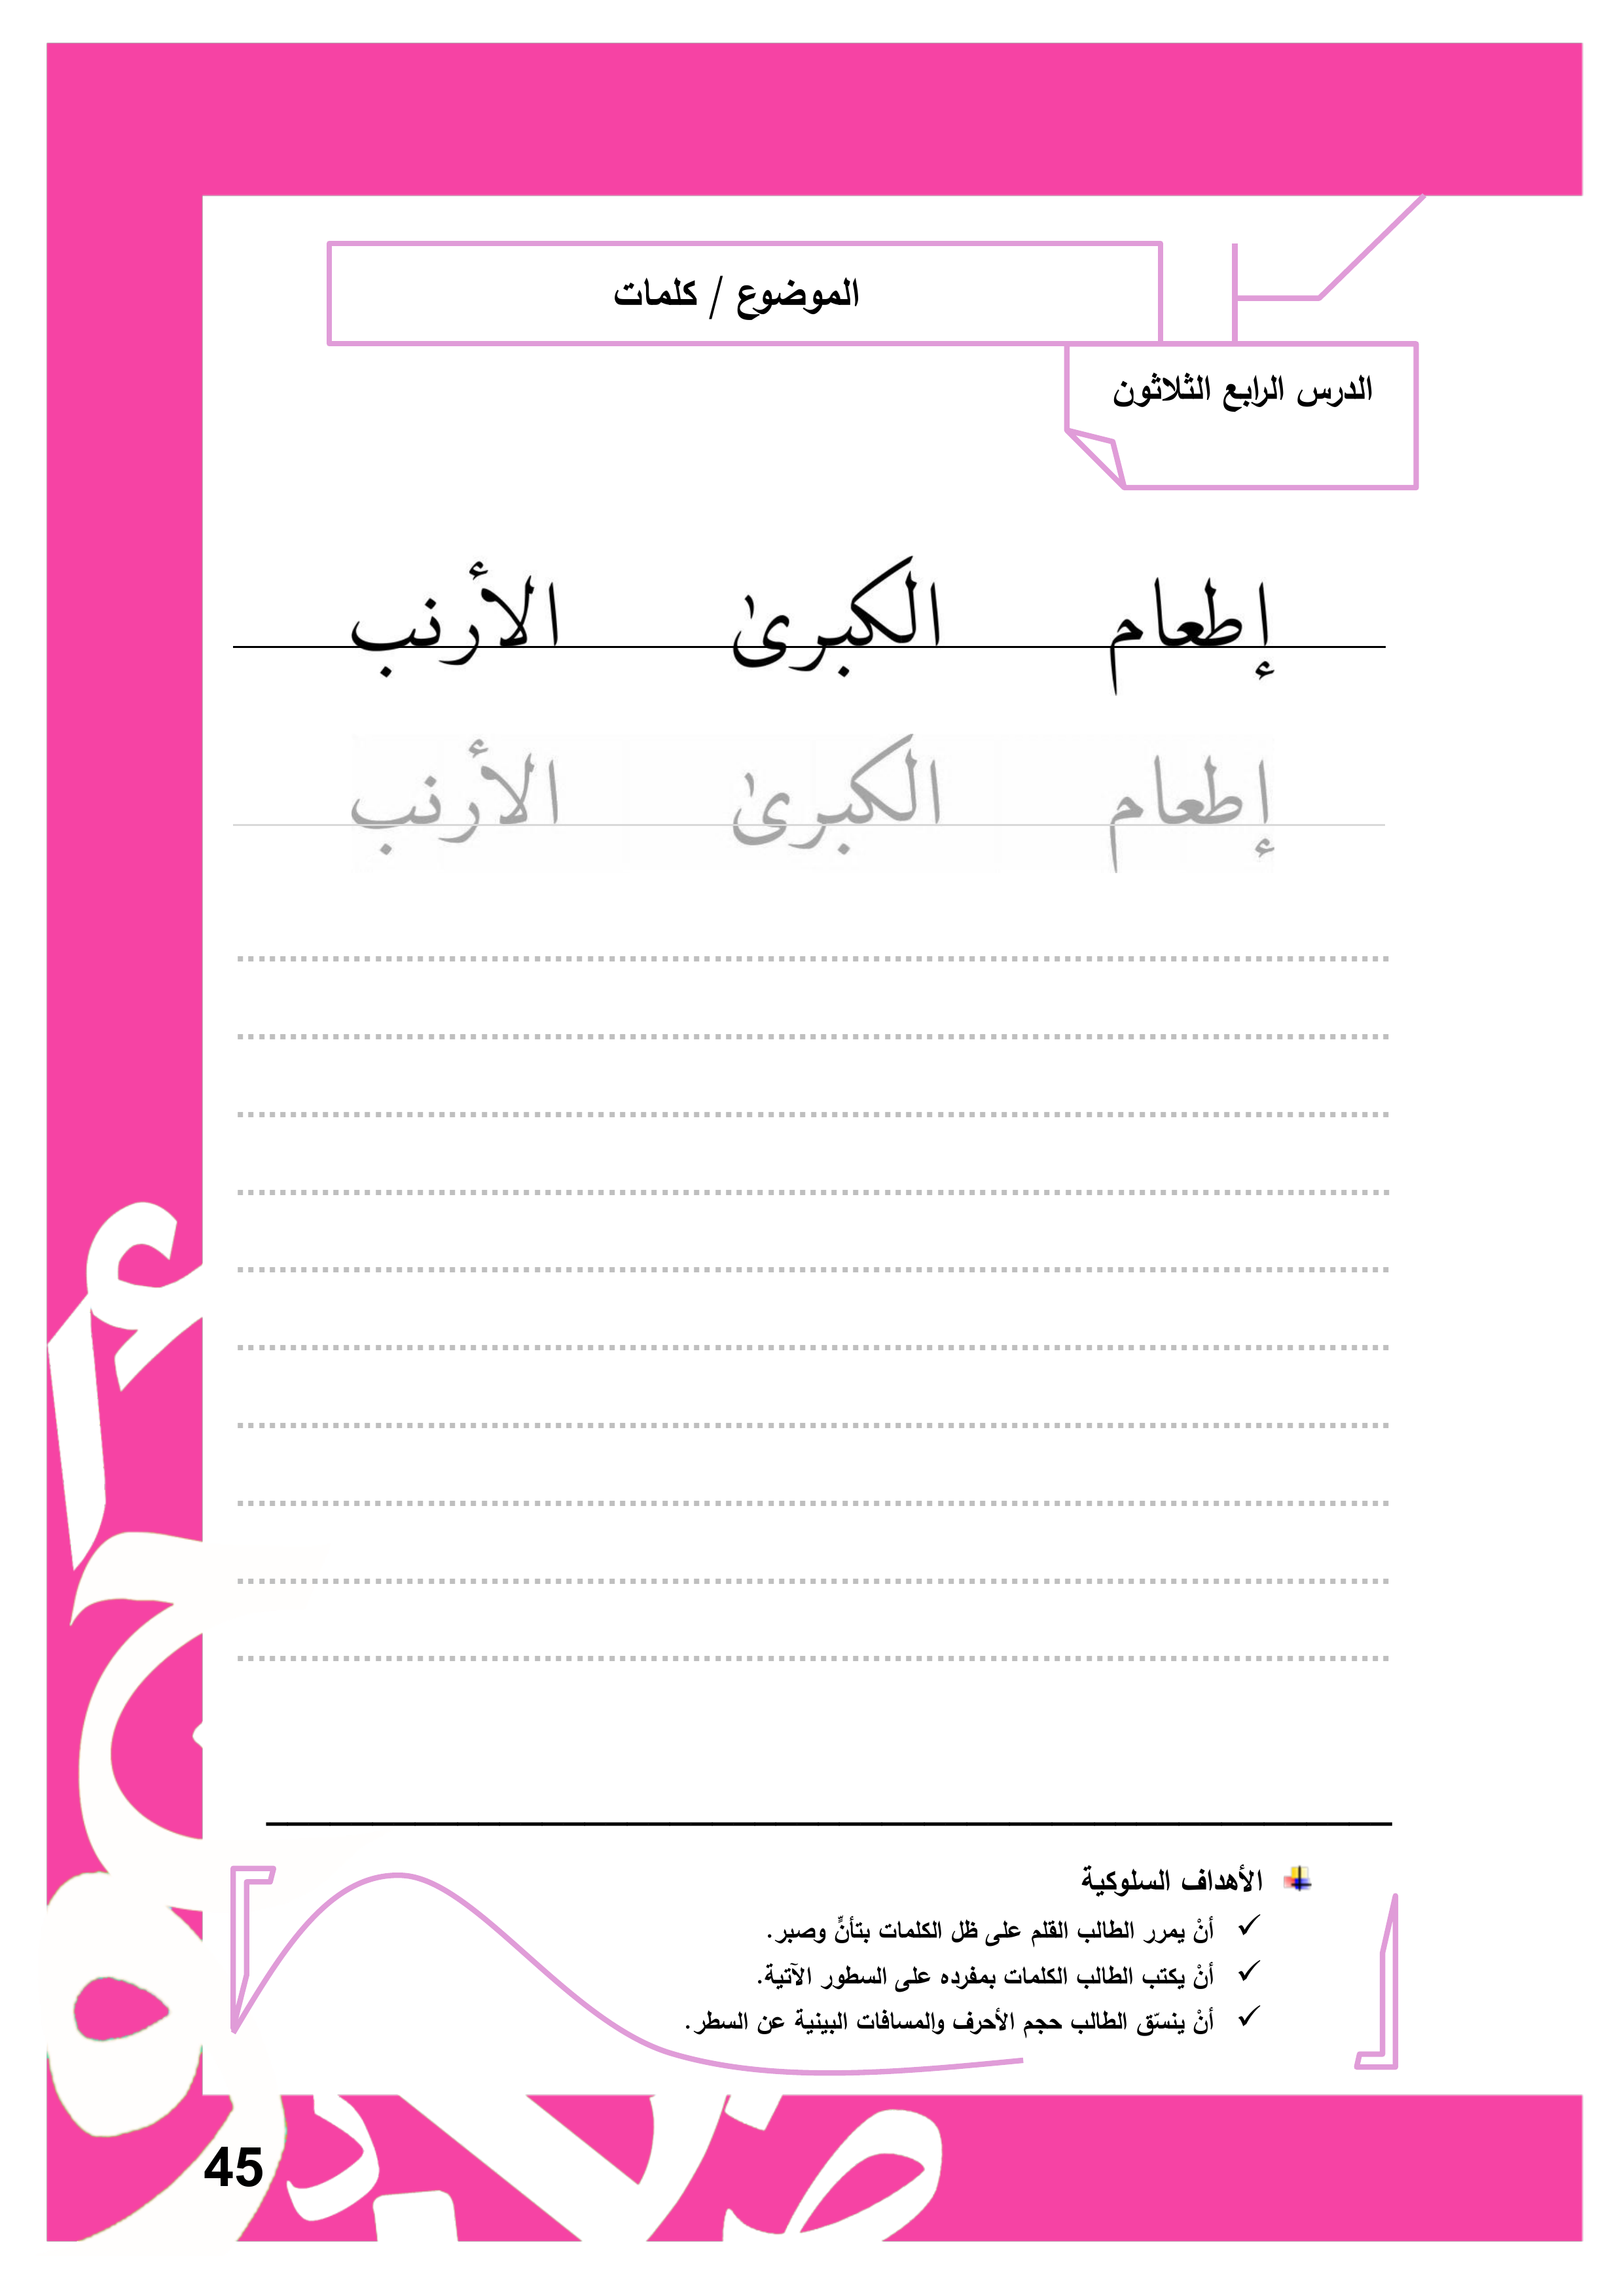 الموضوع / كلمات
الدرس الرابع الثلاثون
إطعام الكبرىٰ الأرنب
إطعام الكبرىٰ الأرنب
الأهداف السلوكية
أنْ يمرر الطالب القلم على ظل الكلمات بتأنٍّ وصبر.
أنْ يكتب الطالب الكلمات بمفرده على السطور الآتية.
أنْ ينسّق الطالب حجم الأحرف والمسافات البينية عن السطر.
45